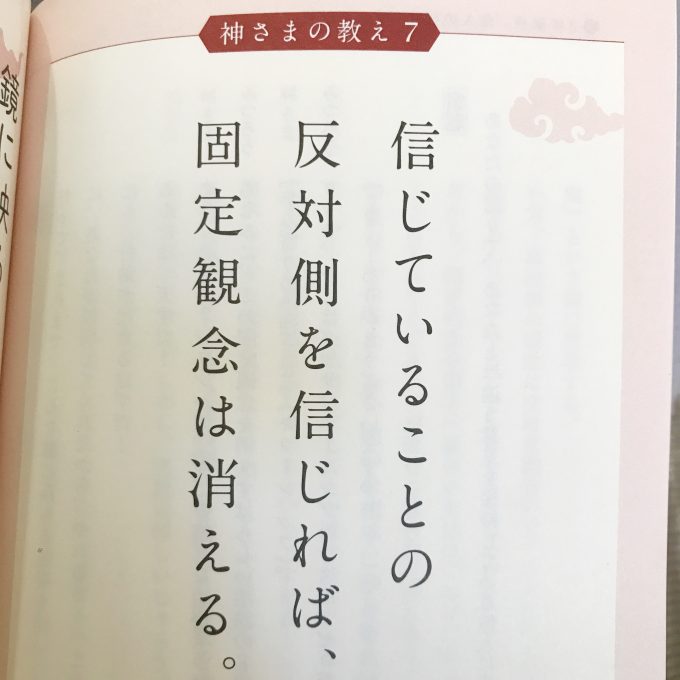 神さまの教え 7
信じていることの
反対側を信じれば、
固定観念は消える。
鏡に映る